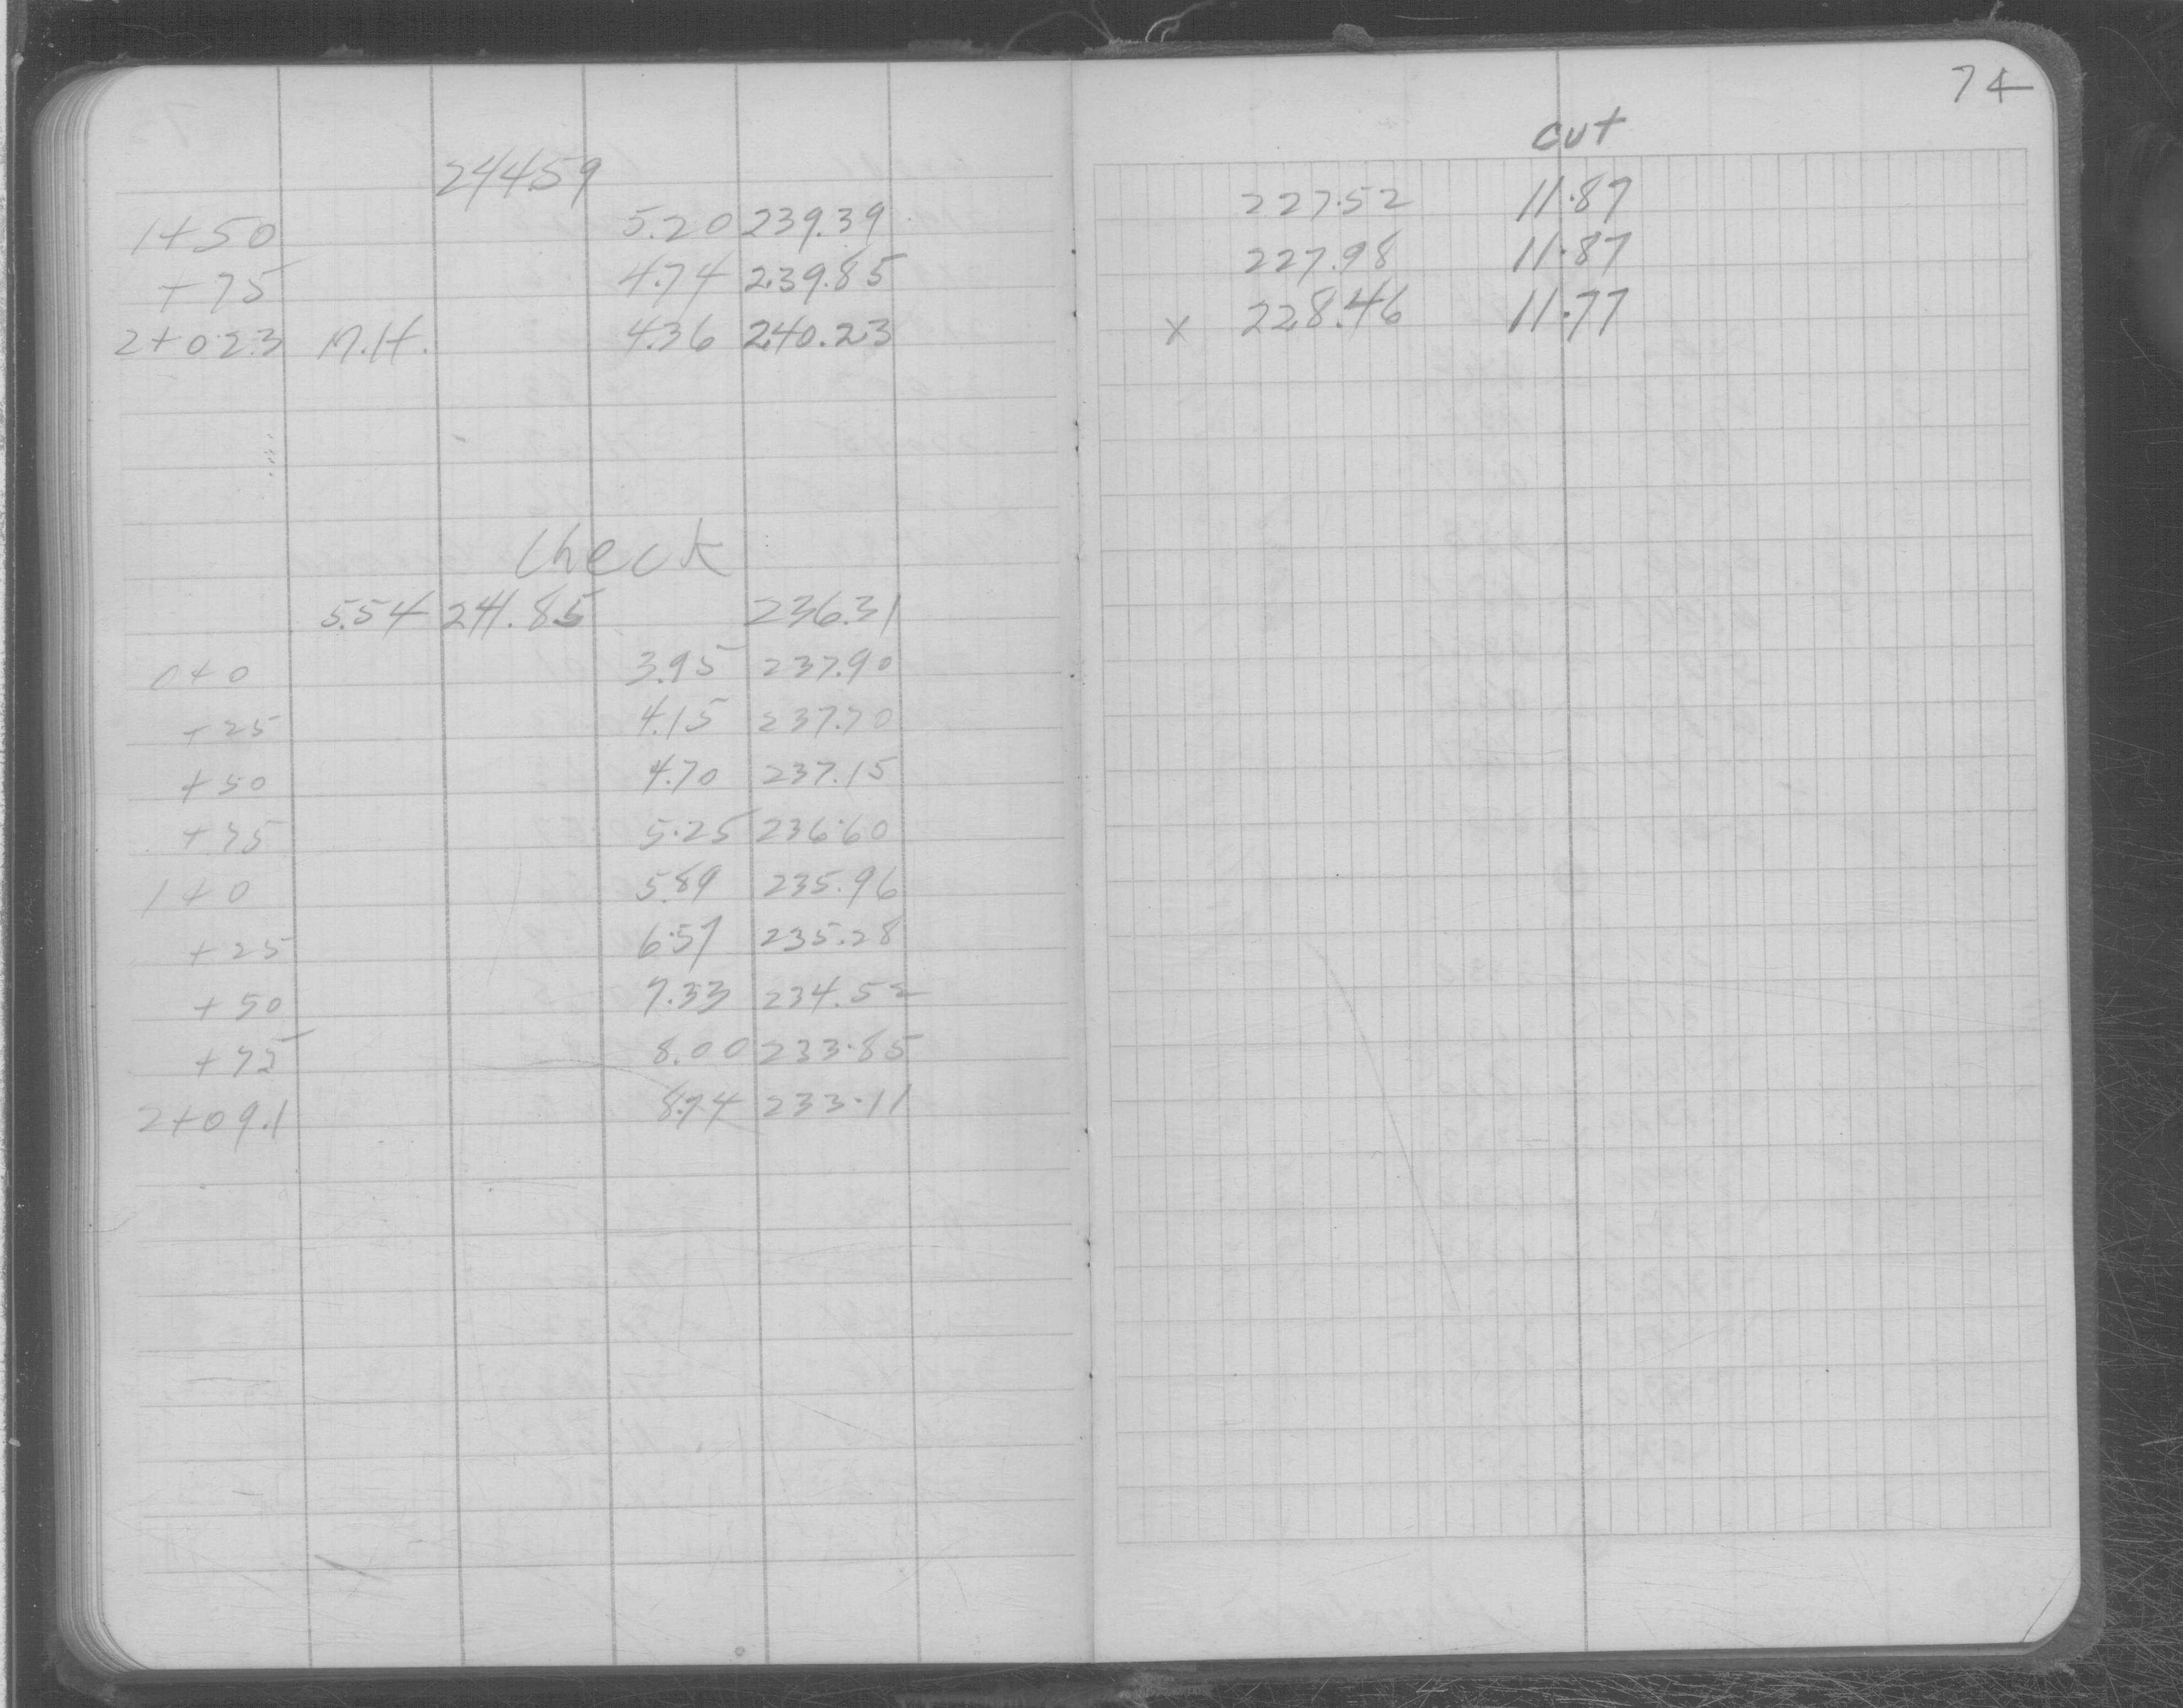 74
cut
244.59
1+50 5.20 239.39 227.52 11.87
+75 4.74 239.85 227.98 11.87
2+02.3 M.H. 4.36 240.23 x 228.46 11.77
Check
5.54 241.85 236.31
0+0 3.95 237.90
+25 4.15 237.70
+50 4.70 237.15
+75 5.25 236.60
1+0 5.89 235.96
+25 6.57 235.28
+50 7.33 234.52
+75 8.00 233.85
2+09.1 8.74 233.11